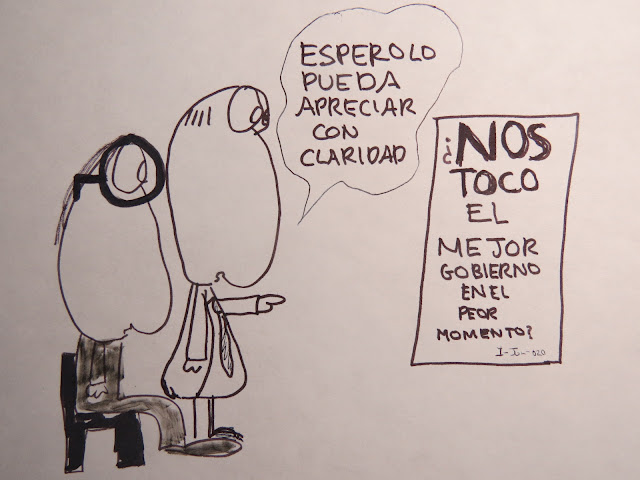 ESPEROLO
PUEDA
APRECIAR
CON
CLARIDAD
¿NOS
TOCO
EL
MEJOR
GOBIERNO
EN EL
PEOR
MOMENTO?